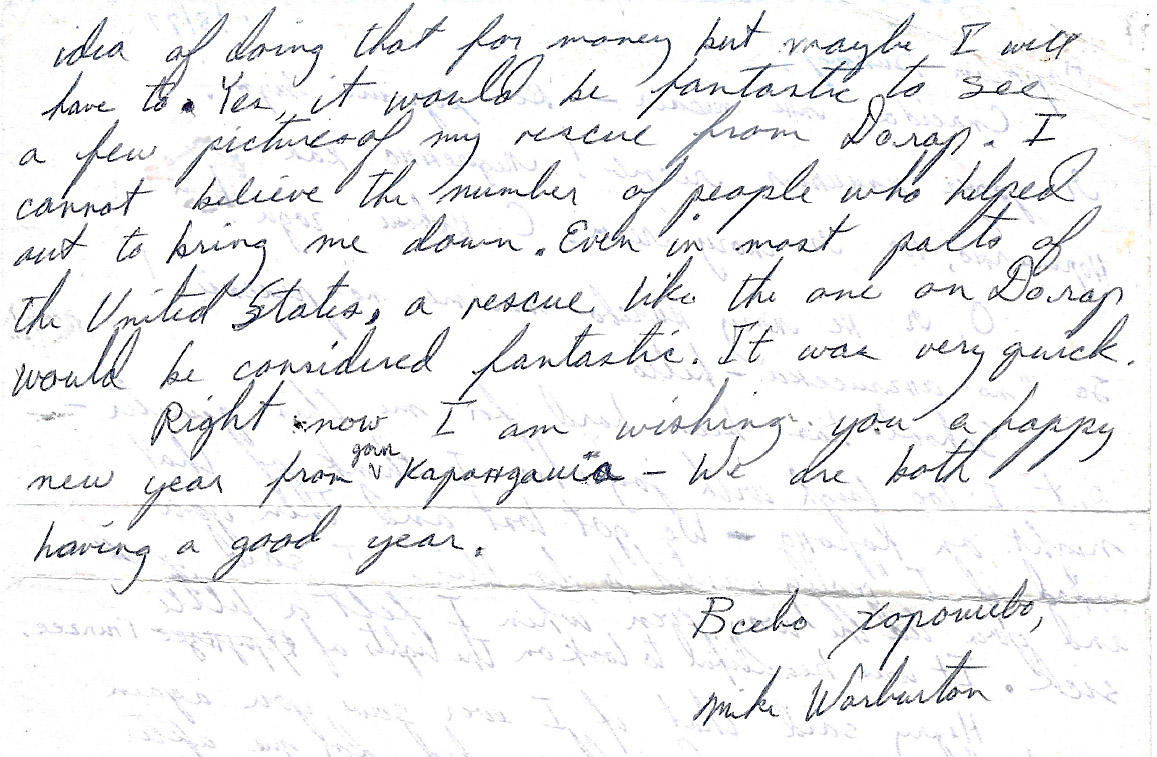 idea of doing that for money but maybe I will
have to. Yes, it would be fantastic to see
a few pictures of my rescue from Darap. I
cannot believe the number of people who helped
out to bring me down. Even in most parts of
the United States, a rescue like the one on Darap
would be considered fantastic. It was very quick.
Right now I am wishing you a happy
new year from
having a good year.
Всево хорошево,
Mike Warburton